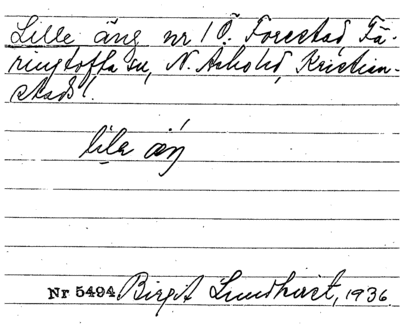 Lille äng nr 1 Ö. Forestad, Fä-
ringtofta sn, N. Åsbo hd, Kristian-
stads l.
lilə äŋ
Nr 5494 Birgit Lundkvist, 1936.